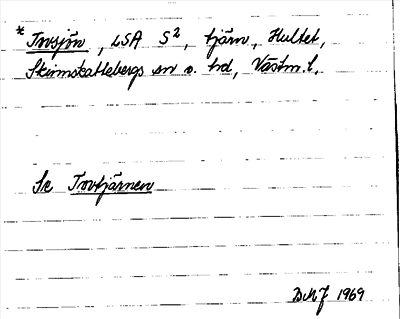 * Trosjön, LSA S2, tjärn, Hultet,
Skinnskattebergs sn o. hd, Västm. l.
Se Trovtjärnen
DMJ 1969